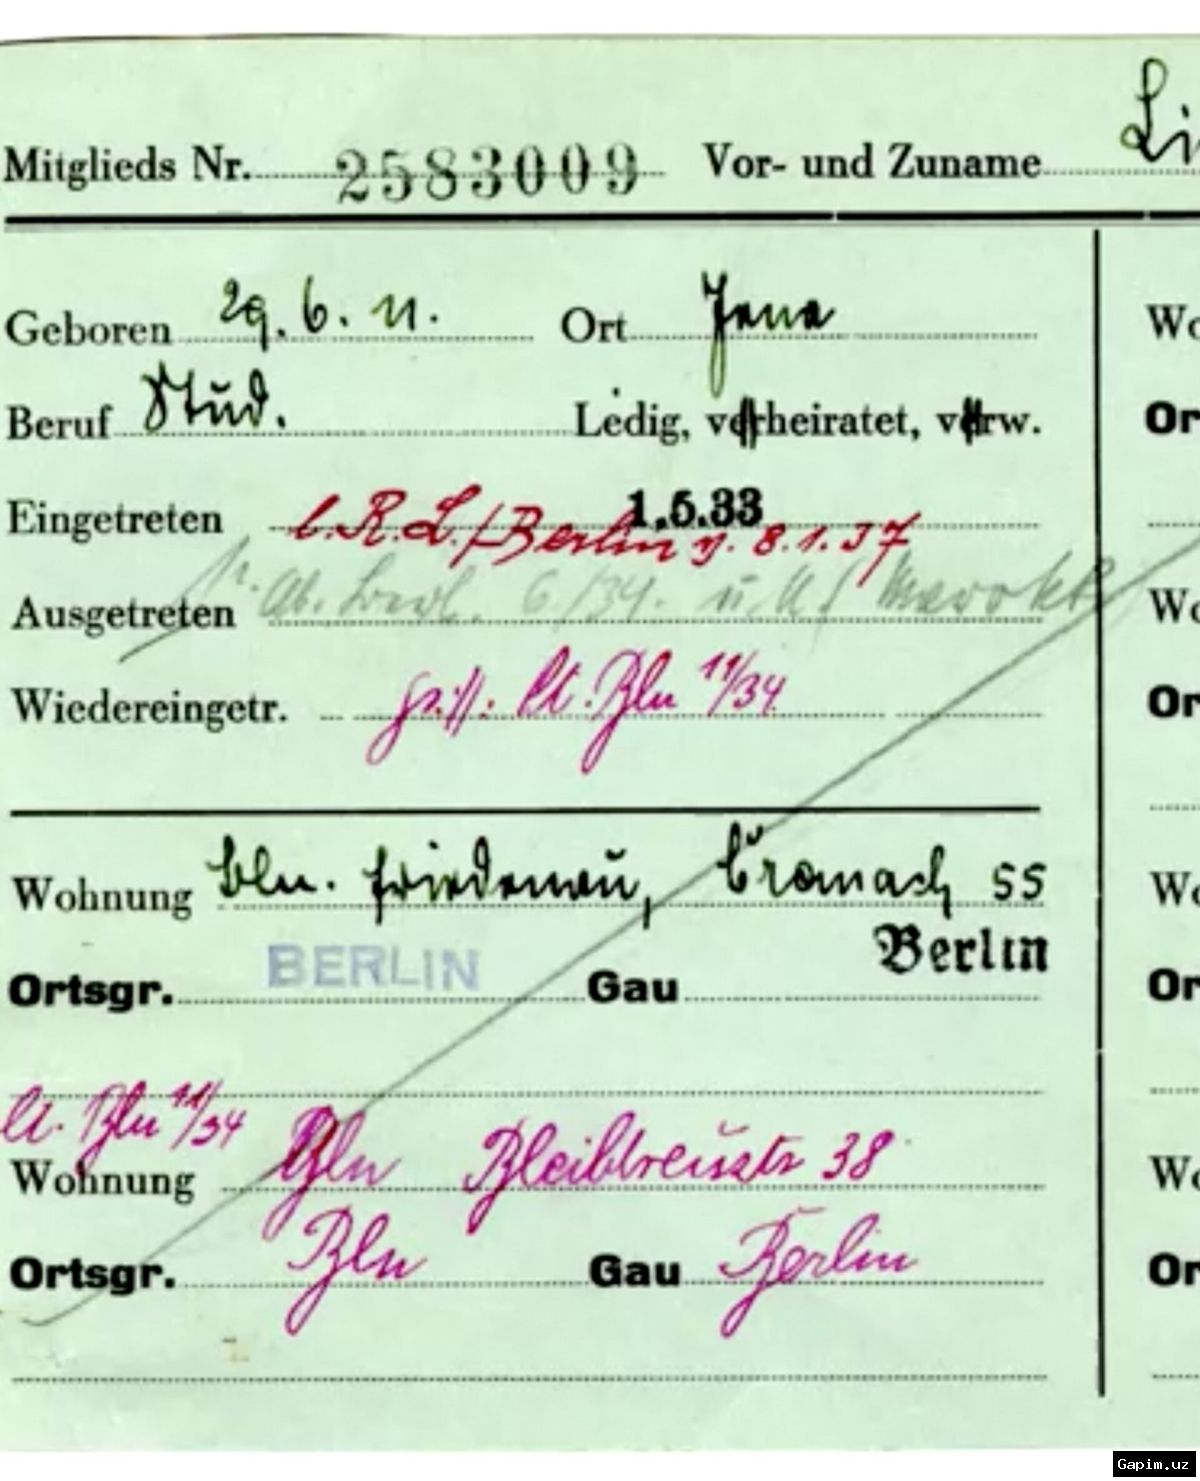 Mitglieds Nr. 2583009 Vor- und Zuname Li
Geboren 29.6.11. Ort Jena
Beruf Stud. Ledig, verheiratet, verw.
Eingetreten 1.5.33
b. R.L./Berlin v. 8.1.37
Ausgetreten 6/34.
Wiedereingetr. lt. Bln 11/34
Wohnung Bln. Friedenau, Cranach 55
Ortsgr. BERLIN Gau Berlin
lt. Bln 11/34
Wohnung Bln Bleibtreustr 38
Ortsgr. Bln Gau Berlin
Wo
Or
Wo
Or
Wo
Or
Wo
Or
Gapim.uz